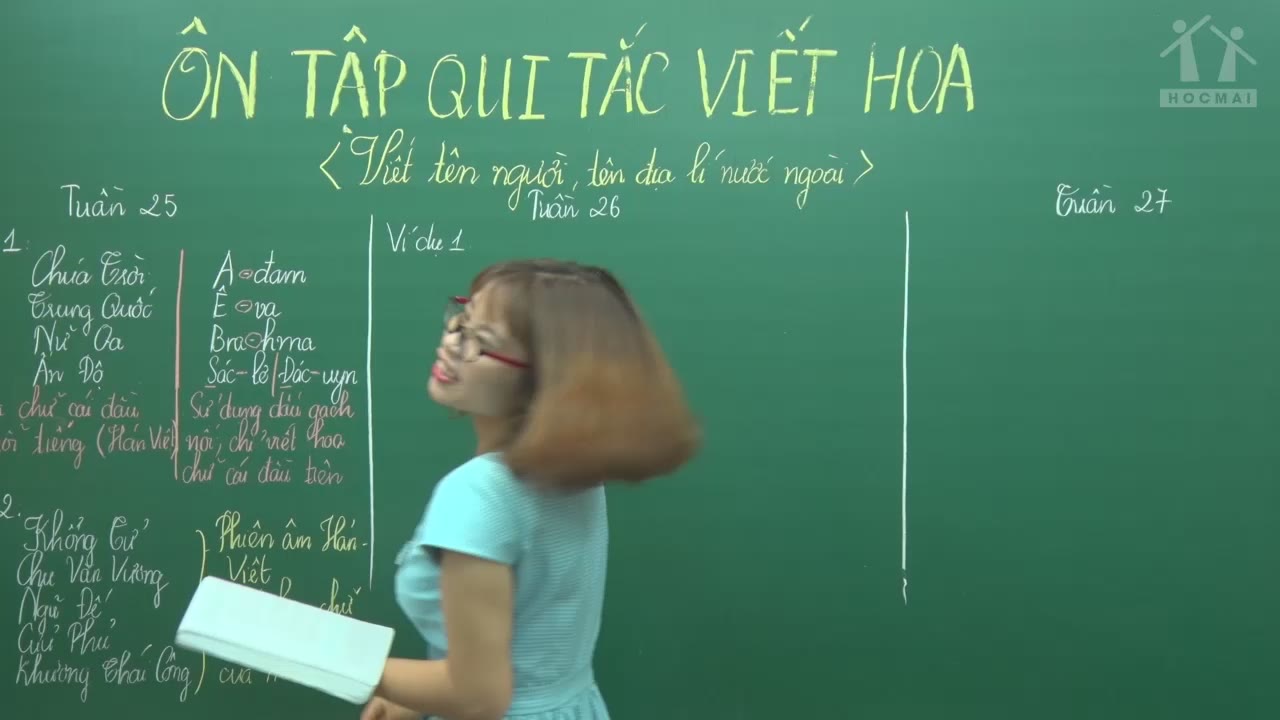 HOCMAI
ÔN TẬP QUI TẮC VIẾT HOA
<Viết tên người, tên địa lí nước ngoài>
Tuần 25
1.
Chúa Trời
Trung Quốc
Nữ Oa
Ấn Độ
chữ cái đầu
tiếng (Hán Việt)
A-đam
Ê-va
Bra-hma
Sác-lơ Đác-uyn
Sử dụng dấu gạch
nối, chỉ viết hoa
chữ cái đầu tiên
2.
Khổng Tử
Chu Văn Vương
Ngũ Đế
Cửu Phủ
Khương Thái Công
Phiên âm Hán-
Việt
chữ
của
Tuần 26
Ví dụ 1
Tuần 27